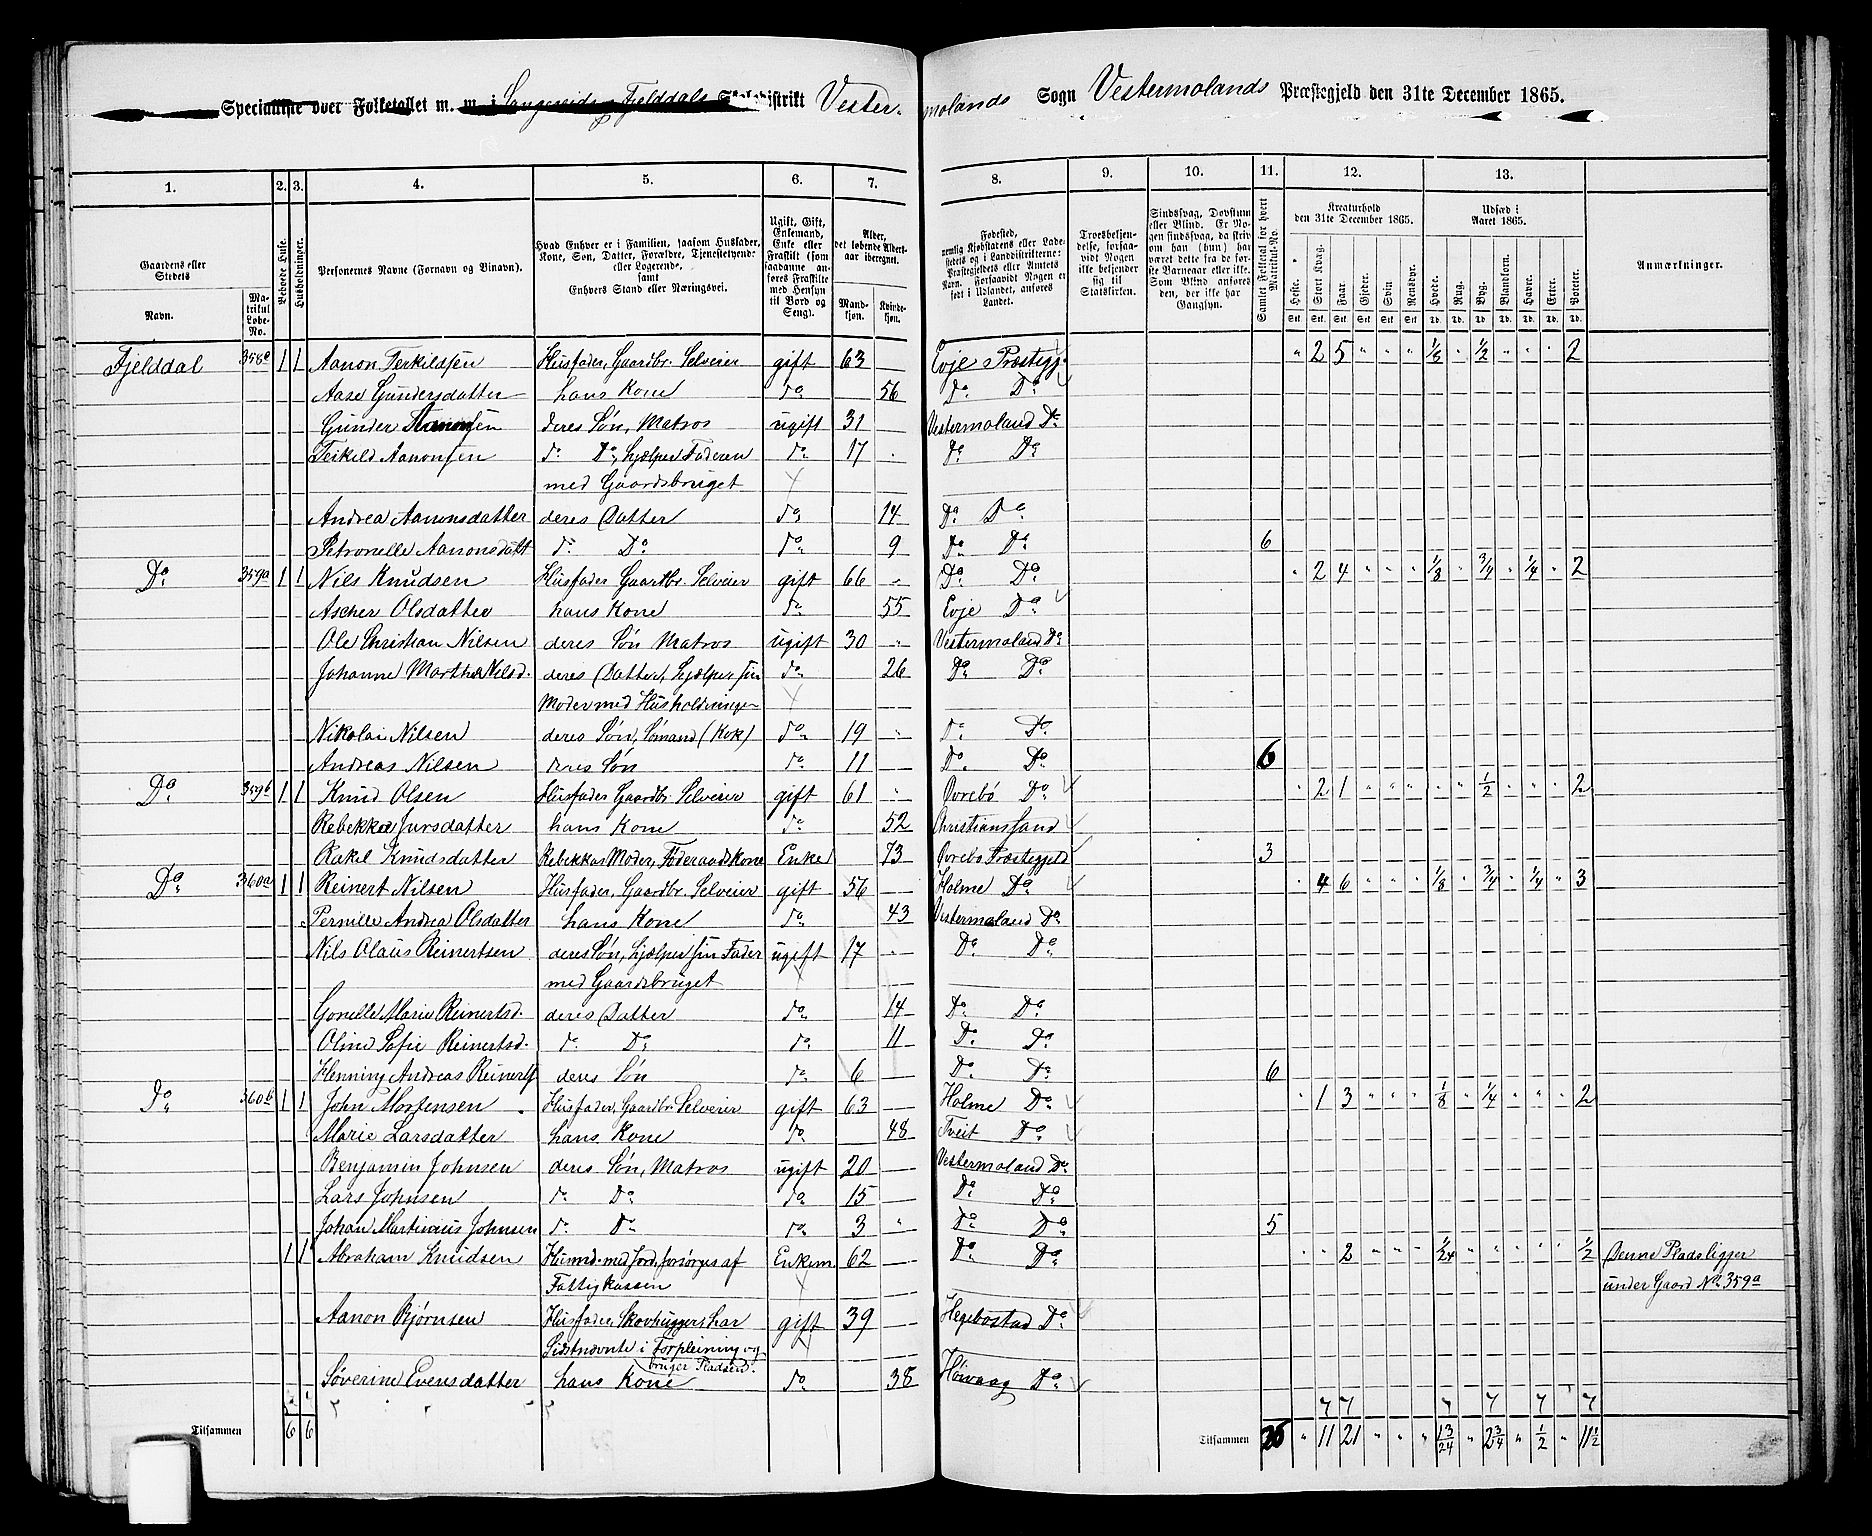 Specialliste over Folketallet m. m. i Langereids og Fjelddals Skoledistrikt Vestermolands Sogn Vestermolands Præstegjeld den 31te December 1865.
1. 2. 3. 4. 5. 6. 7. 8. 9. 10. 11. 12. 13.
Gaardens eller Stedets Navn. Matrikul Løbe-No.
Beboede Huse.
Husholdninger.
Personernes Navne (Fornavn og Tilnavn).
Hvad Enhver er i Familien, saasom Husfader, Kone, Søn, Datter, Forældre, Tjenestetyende eller Logerende samt Enhvers Stand eller Næringsvei.
Ugift, Gift, Enkemand, Enke eller Fraskilt (som saadanne anføres Fraskilte med Hensyn til Bord og Seng).
Alder, det løbende Aldersaar iberegnet. Mandkjøn. Kvindekjøn.
Fødested, nemlig Kjøbstadens eller Ladestedets og i Landdistrikterne: Præstegjeldets eller Amtets Navn. Forsaavidt Nogen er født i Udlandet, anføres Landet.
Troesbekjendelse, forsaavidt Nogen ikke bekjender sig til Statskirken.
Sindssvag, Døvstum eller Blind. Er Nogen sindssvag, da skrives om han (hun) har været dette fra de første Barneaar eller ikke. Som Blind ansføres den, der ikke har Gangsyn.
Samlet Folketal for hvert Matrikul-No.
Kreaturhold den 31te December 1865. Heste. Stort Kvæg. Faar. Gjeder. Svin. Rensdyr.
Udsæd i Aaret 1865. Hvede. Rug. Byg. Blandkorn. Havre. Erter. Poteter.
Anmærkninger.
Fjelddal 358a 1 1 Aanon Terkildsen Husfader, Gaardbr. Selveier gift 63 Evje Præstegj. " 2 5 " " " 1/8 " 1/2 " " " 2
Aase Gundersdatter hans Kone do 56 Do Do
Gunder Aanonsen deres Søn, Matros ugift 31 Vestermoland Do
Terkild Aanonsen do Do, hjælper Faderen do 17 Do Do
med Gaardsbruget
Andrea Aanonsdatter deres Datter do 14 Do Do
Petronelle Aanonsdatt do Do do 9 Do Do 6
Do 359a 1 1 Nils Knudsen Husfader Gaardbr. Selveier gift 66 Do Do " 2 4 " " " 1/8 " 3/4 " 1/4 " 2
Ascher Olsdatter hans Kone do 55 Evje Do
Ole Christian Nilsen deres Søn Matros ugift 30 Vestermoland Do
Johanne Marthea Nilsd. deres Datter, hjælper sin do 26 Do Do
Moder med Husholdningen
Nikolai Nilsen deres Søn, Sømand (Kok) do 19 Do Do
Andreas Nilsen deres Søn do 11 Do Do 6
Do 359b 1 1 Knud Olsen Husfader Gaardbr Selveier gift 61 Øvrebø Do " 2 1 " " " " " 1/2 " " " 2
Rebekka Jursdatter hans Kone do 52 Christianssand
Rakel Knudsdatter Rebekkas Moder, Føderaadskone Enke 73 Øvrebø Præstegjeld 3
Do 360a 1 1 Reinert Nilsen Husfader, Gaardbr. Selveier gift 56 Holme Do " 4 6 " " " 1/8 " 3/4 " 1/4 " 3
Pernille Andrea Olsdatter hans Kone do 43 Vestermoland Do
Nils Olaus Reinertsen deres Søn, hjælper sin Fader ugift 17 Do Do
med Gaardsbruget
Gonelle Marie Reinertsd. deres Datter do 14 Do Do
Oline Sofie Reinertsd. do Do do 11 Do Do
Henning Andreas Reinerts deres Søn do 6 Do Do 6
Do 360b 1 1 John Mortensen Husfader, Gaardbr Selveier gift 63 Holme Do " 1 3 " " " 1/8 " 1/4 " " " 2
Marie Larsdatter hans Kone do 48 Tveit Do
Benjamin Johnsen deres Søn, Matros ugift 20 Vestermoland Do
Lars Johnsen do Do do 15 Do Do
Johan Martinius Johnsen do Do do 3 Do Do 5
1 1 Abraham Knudsen Huusmd. med Jord, forsørges af Enkem. 62 Do Do " " 2 " " " 1/24 " " " " " 1/2 Denne Plads ligger
Fattigkassen under Gaard No 359a
Aanon Bjørnsen Husfader, Skovhugger, har gift 39 Hegebostad Do
Sidstnævnte i Forpleining og
bruger Pladsen.
Søverine Evensdatter hans Kone do 38 Høivaag Do
7 7 7 7 7 7
Tilsammen 6 6 Tilsammen 26 " 11 21 " " " 13/24 " 2 3/4 " 1/2 " 11 1/2